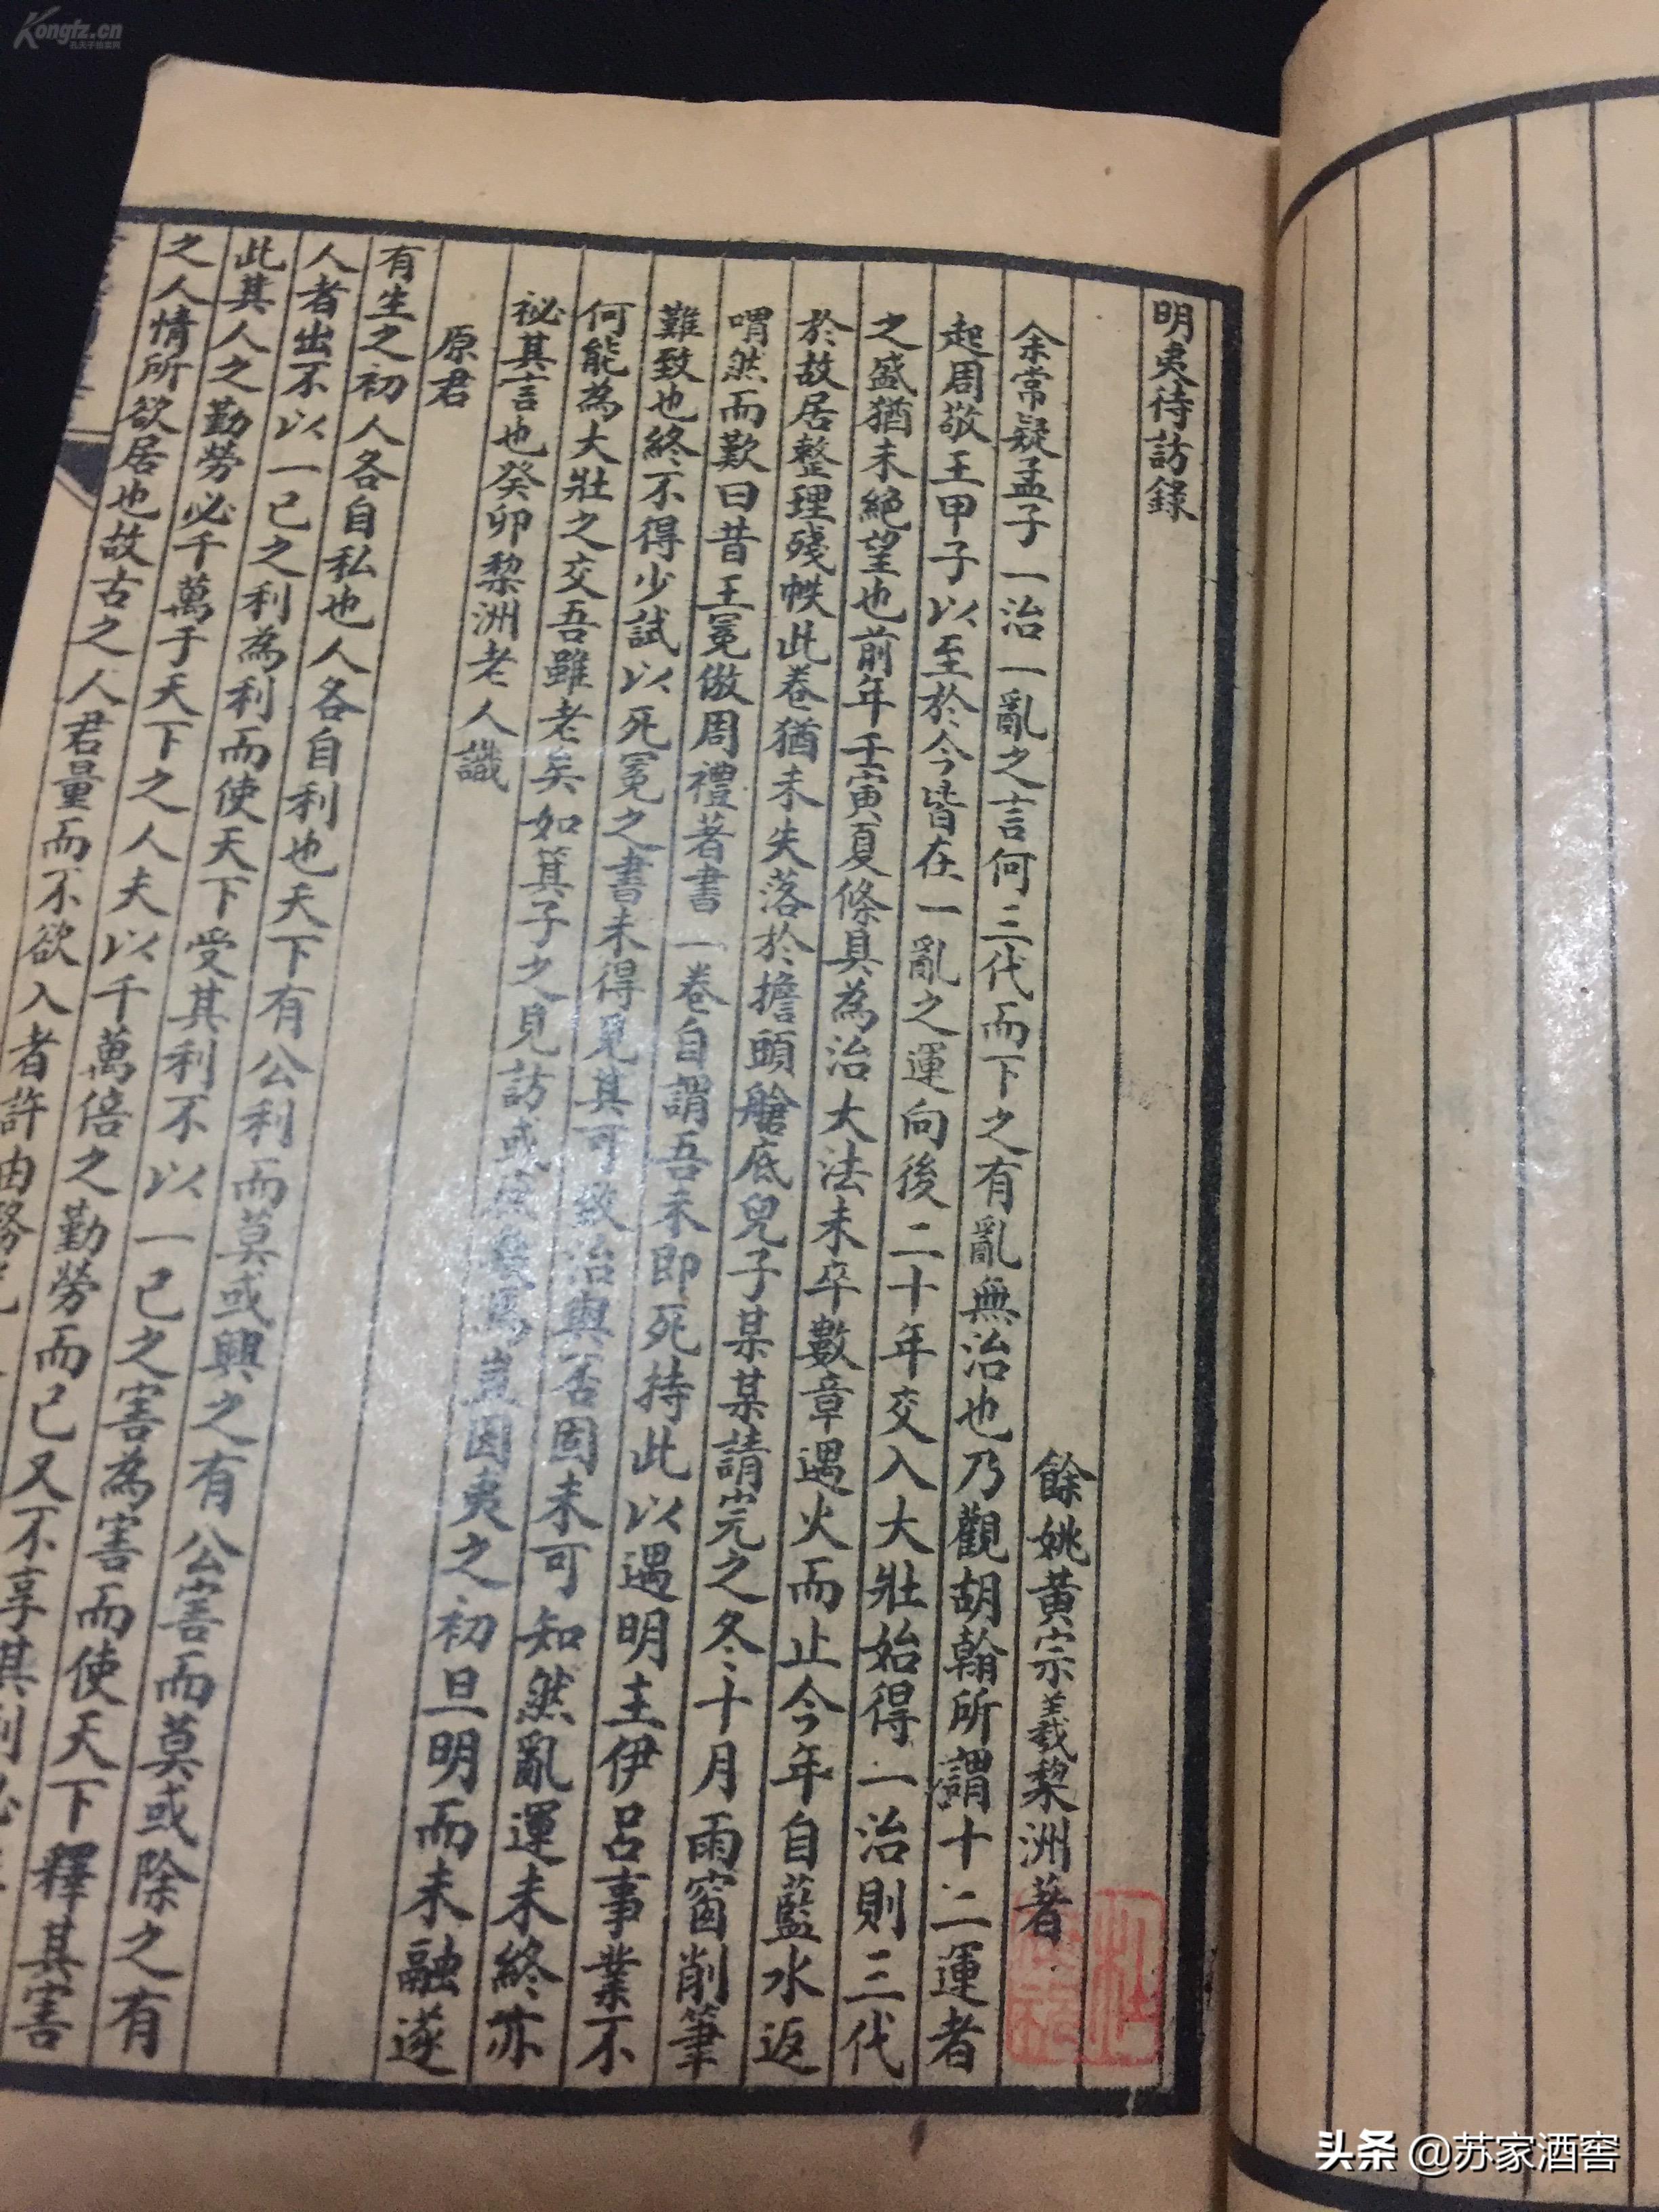 明夷待訪錄
餘姚黃宗羲棃洲著
余常疑孟子一治一亂之言何三代而下之有亂無治也乃觀胡翰所謂十二運者
起周敬王甲子以至於今皆在一亂之運向後二十年交入大壯始得一治則三代
之盛猶未絕望也前年壬寅夏條具為治大法未卒數章遇火而止今年自藍水返
於故居整理殘帙此卷猶未失落於擔頭艙底兒子某某請完之冬十月雨窗削筆
喟然而歎曰昔王冕倣周禮著書一卷自謂吾未即死持此以遇明主伊呂事業不
難致也終不得少試以死冕之書未得見其可致治與否固未可知然亂運未終亦
何能為大壯之交吾雖老矣如箕子之見訪或庶幾焉豈因夷之初旦明而未融遂
祕其言也癸卯棃洲老人識
原君
有生之初人各自私也人各自利也天下有公利而莫或興之有公害而莫或除之有
人者出不以一己之利為利而使天下受其利不以一己之害為害而使天下釋其害
此其人之勤勞必千萬于天下之人夫以千萬倍之勤勞而己又不享其利
之人情所欲居也故古之人君量而不欲入者許由務光
Kongfz.cn
孔夫子旧书网
头条 @苏家酒窖